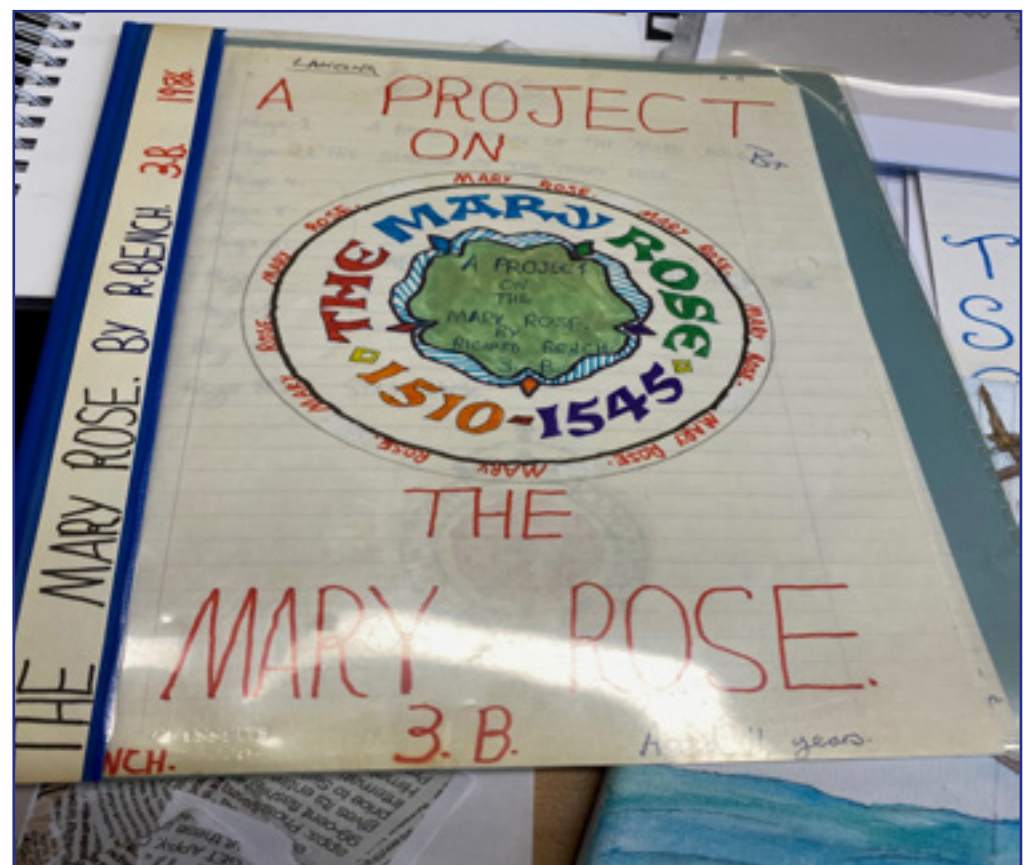 THE MARY ROSE. BY R.BENCH. 3.B. 1988.
A PROJECT
ON
By
MARY ROSE.
MARY ROSE.
MARY ROSE.
MARY ROSE.
MARY ROSE.
MARY ROSE.
MARY ROSE.
THE MARY ROSE
1510-1545
A PROJECT
ON
THE
MARY ROSE.
BY
RICHARD BENCH
3. B.
THE
MARY ROSE.
3. B.
11 years.
NCH.